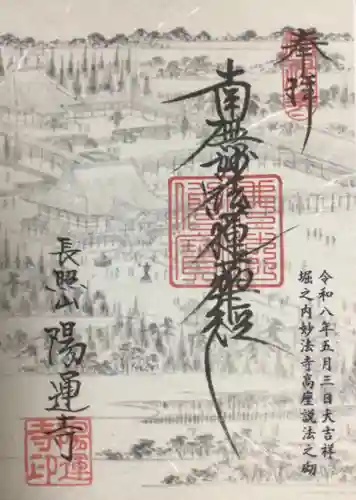 奉拝
南無妙法蓮華経
令和八年五月三日大吉祥
堀之内妙法寺高座説法之砌
長照山
陽運寺
陽運
寺印